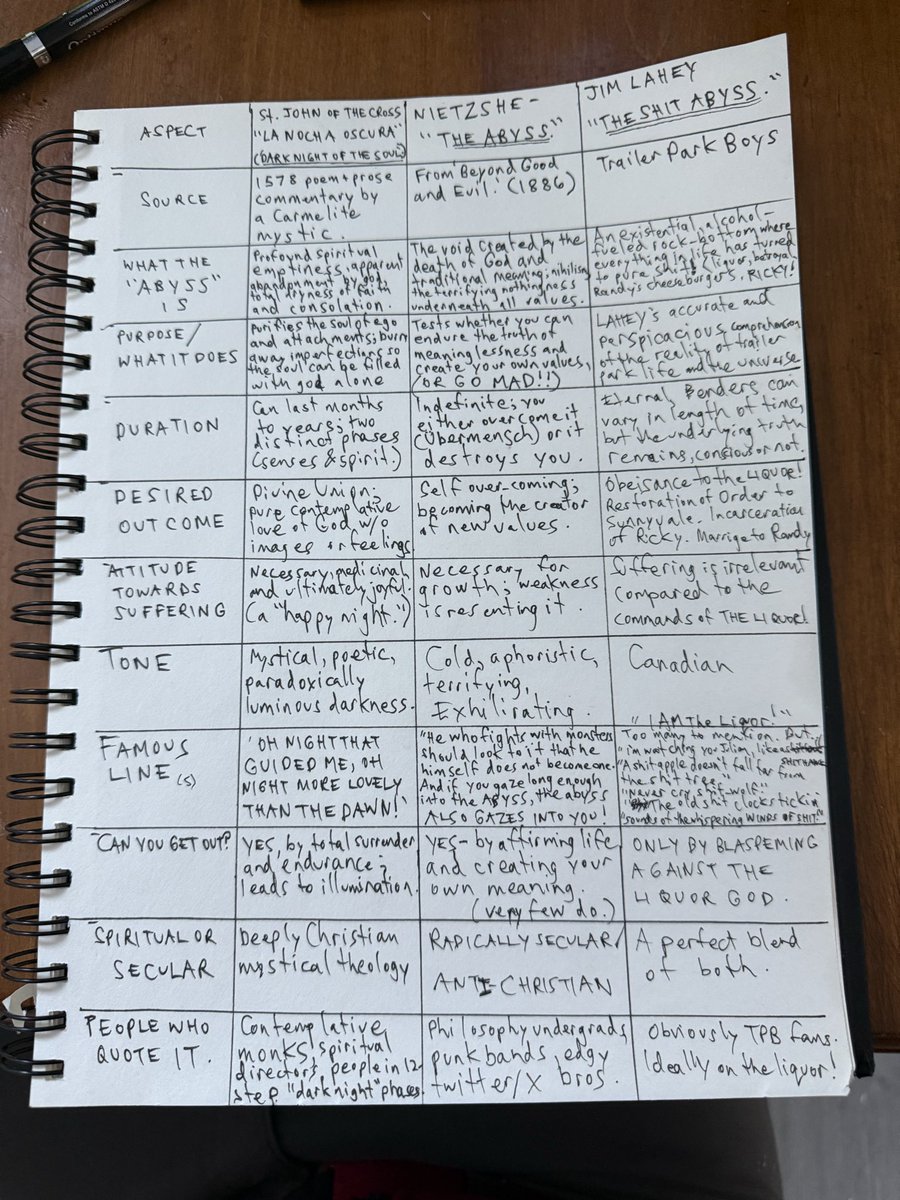 ASPECT
St. JOHN OF THE CROSS
"LA NOCHA OSCURA"
(DARK NIGHT OF THE SOUL)
NIETZSHE -
"THE ABYSS."
JIM LAHEY
"THE SHIT ABYSS."
SOURCE
1578 poem + prose
commentary by
a Carmelite
mystic.
From 'Beyond Good
and Evil.' (1886)
Trailer Park Boys
WHAT THE
"ABYSS"
IS
Profound spiritual
emptiness, apparent
abandonment by god,
total dryness of faith
and consolation.
The void created by the
death of God and
traditional meaning; nihilism,
the terrifying nothingness
underneath all values.
An existential, alcohol-
fueled rock-bottom where
everything in life has turned
to pure shit! (liquor, betrayal
Randy's cheeseburgers. RICKY!
PURPOSE/
WHAT IT DOES
Purifies the soul of ego
and attachments; burn
away imperfections so
the soul can be filled
with god alone
Tests whether you can
endure the truth of
meaninglessness and
create your own values,
(OR GO MAD!!)
LAHEY's accurate and
perspicacious comprehension
of the reality of trailer
park life and the universe
DURATION
Can last months
to years; two
distinct phases
(senses & spirit.)
Indefinite; you
either overcome it
(Übermensch) or it
destroys you.
Eternal, Benders can
vary in length of time,
but the underlying truth
remains, conscious or not.
DESIRED
OUTCOME
Divine Union;
pure contemplative
love of God, w/o
images or feelings
Self over-coming;
becoming the creator
of new values.
Obeisance to the LIQUOR!
Restoration of Order to
Sunnyvale. Incarceration
of Ricky. Marrige to Randy
ATTITUDE
TOWARDS
SUFFERING
Necessary, medicinal
and ultimately joyful.
(a "happy night.")
Necessary for
growth; weakness
is resenting it.
Suffering is irrelevant
compared to the
commands of THE LIQUOR!
TONE
Mystical, poetic,
paradoxically
luminous darkness.
Cold, aphoristic,
terrifying,
Exhilirating.
Canadian
FAMOUS
LINE (s)
'OH NIGHT THAT
GUIDED ME, OH
NIGHT MORE LOVELY
THAN THE DAWN!'
"He who fights with monsters
should look to it that he
himself does not become one.
And if you gaze long enough
into the ABYSS, the abyss
ALSO GAZES INTO YOU!
"I AM The Liquor!"
Too many to mention. But,
"i'm watching you Jim, like a SHITHAWK
"A shit apple doesn't fall far from
the shit tree."
"Never cry shit-wolf."
"The old shit clocks tickin
"sounds of the whispering WINDS OF SHIT."
CAN YOU GET OUT?
YES, by total surrender
and endurance;
leads to illumination.
YES - by affirming life
and creating your
own meaning.
(very few do.)
ONLY BY BLASPEMING
AGAINST THE
LIQUOR GOD.
SPIRITUAL OR
SECULAR
Deeply Christian
mystical theology
RADICALLY SECULAR/
ANTI-CHRISTIAN
A perfect blend
of both.
PEOPLE WHO
QUOTE IT.
Contemplative
monks, spiritual
directors, people in 12
step "dark night" phases.
Philosophy undergrads,
punk bands, edgy
twitter/X bros.
Obviously TPB fans.
Ideally on the liquor!